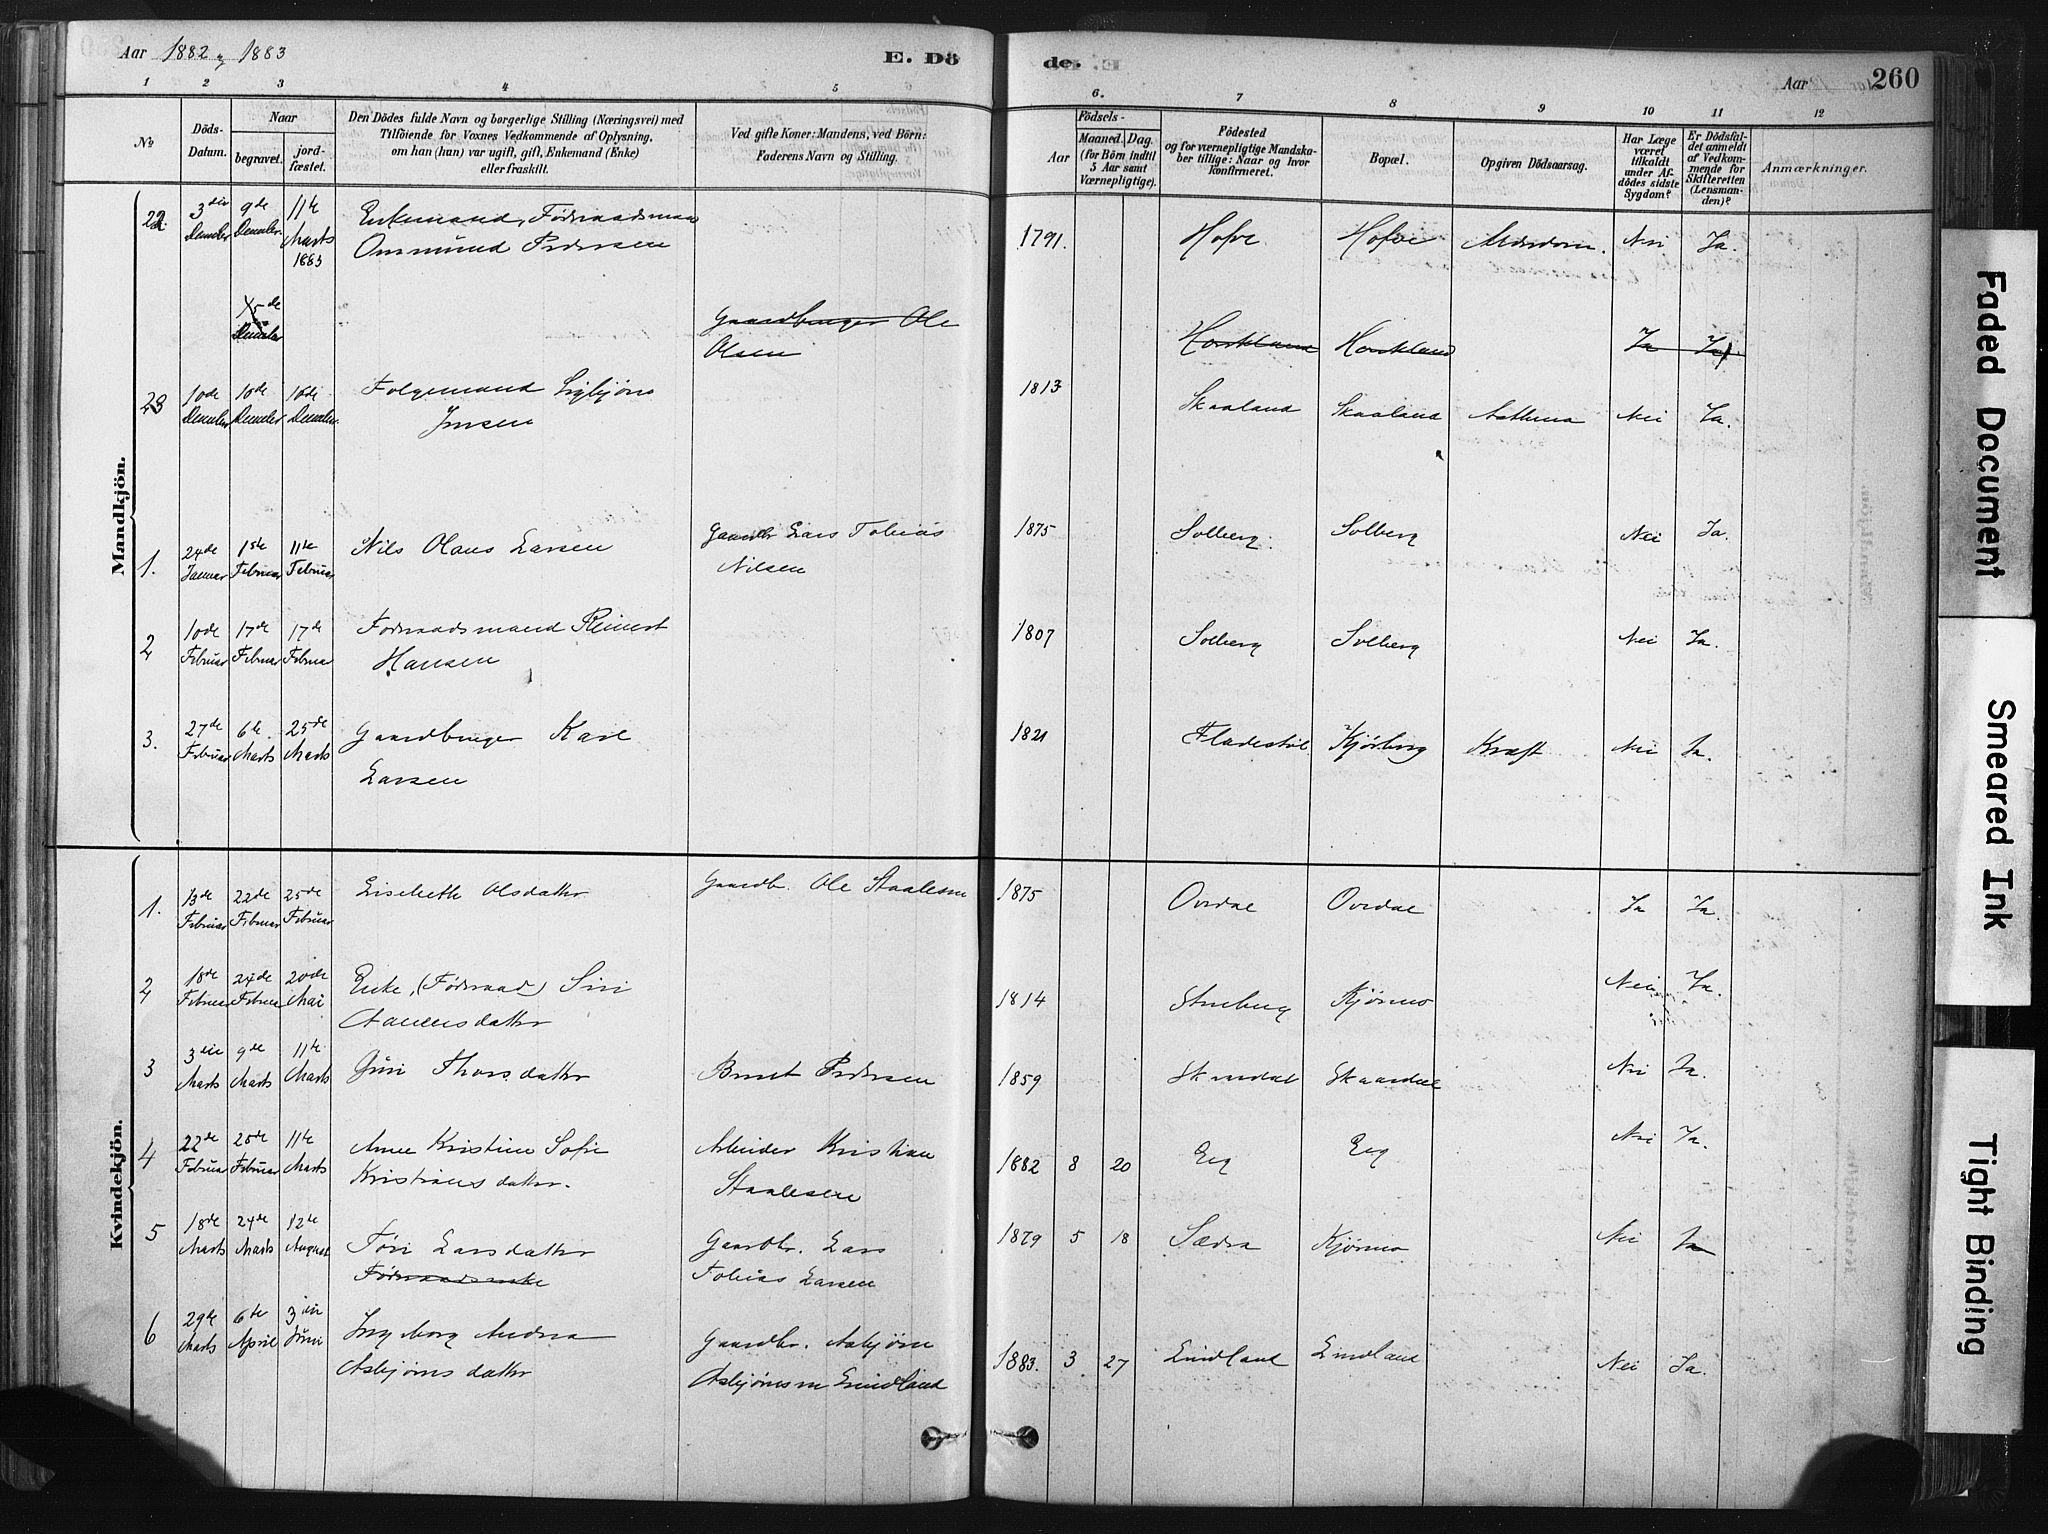 Aar 1882 og 1883
E. Dö
de.
Aar
260
1 2 3 4 5 6. 7 8 9 10 11 12
No
Döds-
Datum.
Naar
begravet.
jord-
fæstet.
Den Dödes fulde Navn og borgerlige Stilling (Næringsvei) med
Tilföiende for Voxnes Vedkommende af Oplysning,
om han (hun) var ugift, gift, Enkemand (Enke)
eller fraskilt.
Ved gifte Koner: Mandens, ved Börn:
Faderens Navn og Stilling.
Födsels-
Aar
Maaned.
Dag.
(for Börn indtil
5 Aar samt
Værnepligtige).
Födested
og for værnepligtige Mandska-
ber tillige: Naar og hvor
konfirmeret.
Bopæl.
Opgiven Dödsaarsag.
Har Læge
været
tilkaldt
under Af-
dödes sidste
Sygdom?
Er Dödsfal-
det anmeldt
af Vedkom-
mende for
Skifteretten
(Lensman-
den)?
Anmærkninger.
Mandkjön.
22. 3die 9de 11te Enkemand, Föderaadsmand
Marts Ommund Pedersen 1791. Hofve Hofve Alderdom. Nei Ja.
1883
15de Gaardbruger Ole
Olsen
Ja Ja
23 10de 18de 18de Folgemand Sigbjörn
Jensen 1813 Skaaland Skaaland Asthma Nei Ja.
1. 24de 1ste 11te Nils Olaus Larsen Gaardbr Lars Tobias 1875 Solberg. Solberg Nei Ja.
Januar Februar Februar Nilsen
2 10de 17de 17de Föderaadsmand Reinert 1807 Solberg Solberg Nei Ja.
Februar Februar Februar Hansen
3. 27de 6te 25de Gaardbruger Karl 1821 Fladestöl Kjörberg Kræft Nei Ja.
Februar Marts Marts Larsen
Kvindekjön.
1. 13de 22de 25de Lisebeth Olsdatter Gaardb. Ole Staalesen 1875 Ovedal Ovedal Ja Ja.
Februar Februar Februar
2 18de 24de 20de Enke, (Föderaad) Siri 1814 Kjörmo Nei Ja.
Februar Februar Mai
3 3die 9de 11te Guri Thorsdatter Berent Pedersen 1859 Skaardal Skaardal Nei Ja.
Marts Marts Marts
4 22de 25de 11te Anne Kristine Sofie Arbeider Kristian 1882 8 20 Eeg Eeg Nei Ja.
Februar Februar Marts Kristiansdatter. Staalesen
5 18de 24de 12te Töri Larsdatter Gaardbr. Lars 1879 5 18 Sædra Kjörmo Nei Ja
Marts Marts August Föderaadsenke Tobias Larsen
6 29de 6te 3die Ingeborg Andrea Gaardbr. Asbjörn 1883. 3 27 Lindland Lindland Nei Ja.
Marts April Juni Asbjörnsdatter Asbjörnsen Lindland
Faded Document
Smeared Ink
Tight Binding